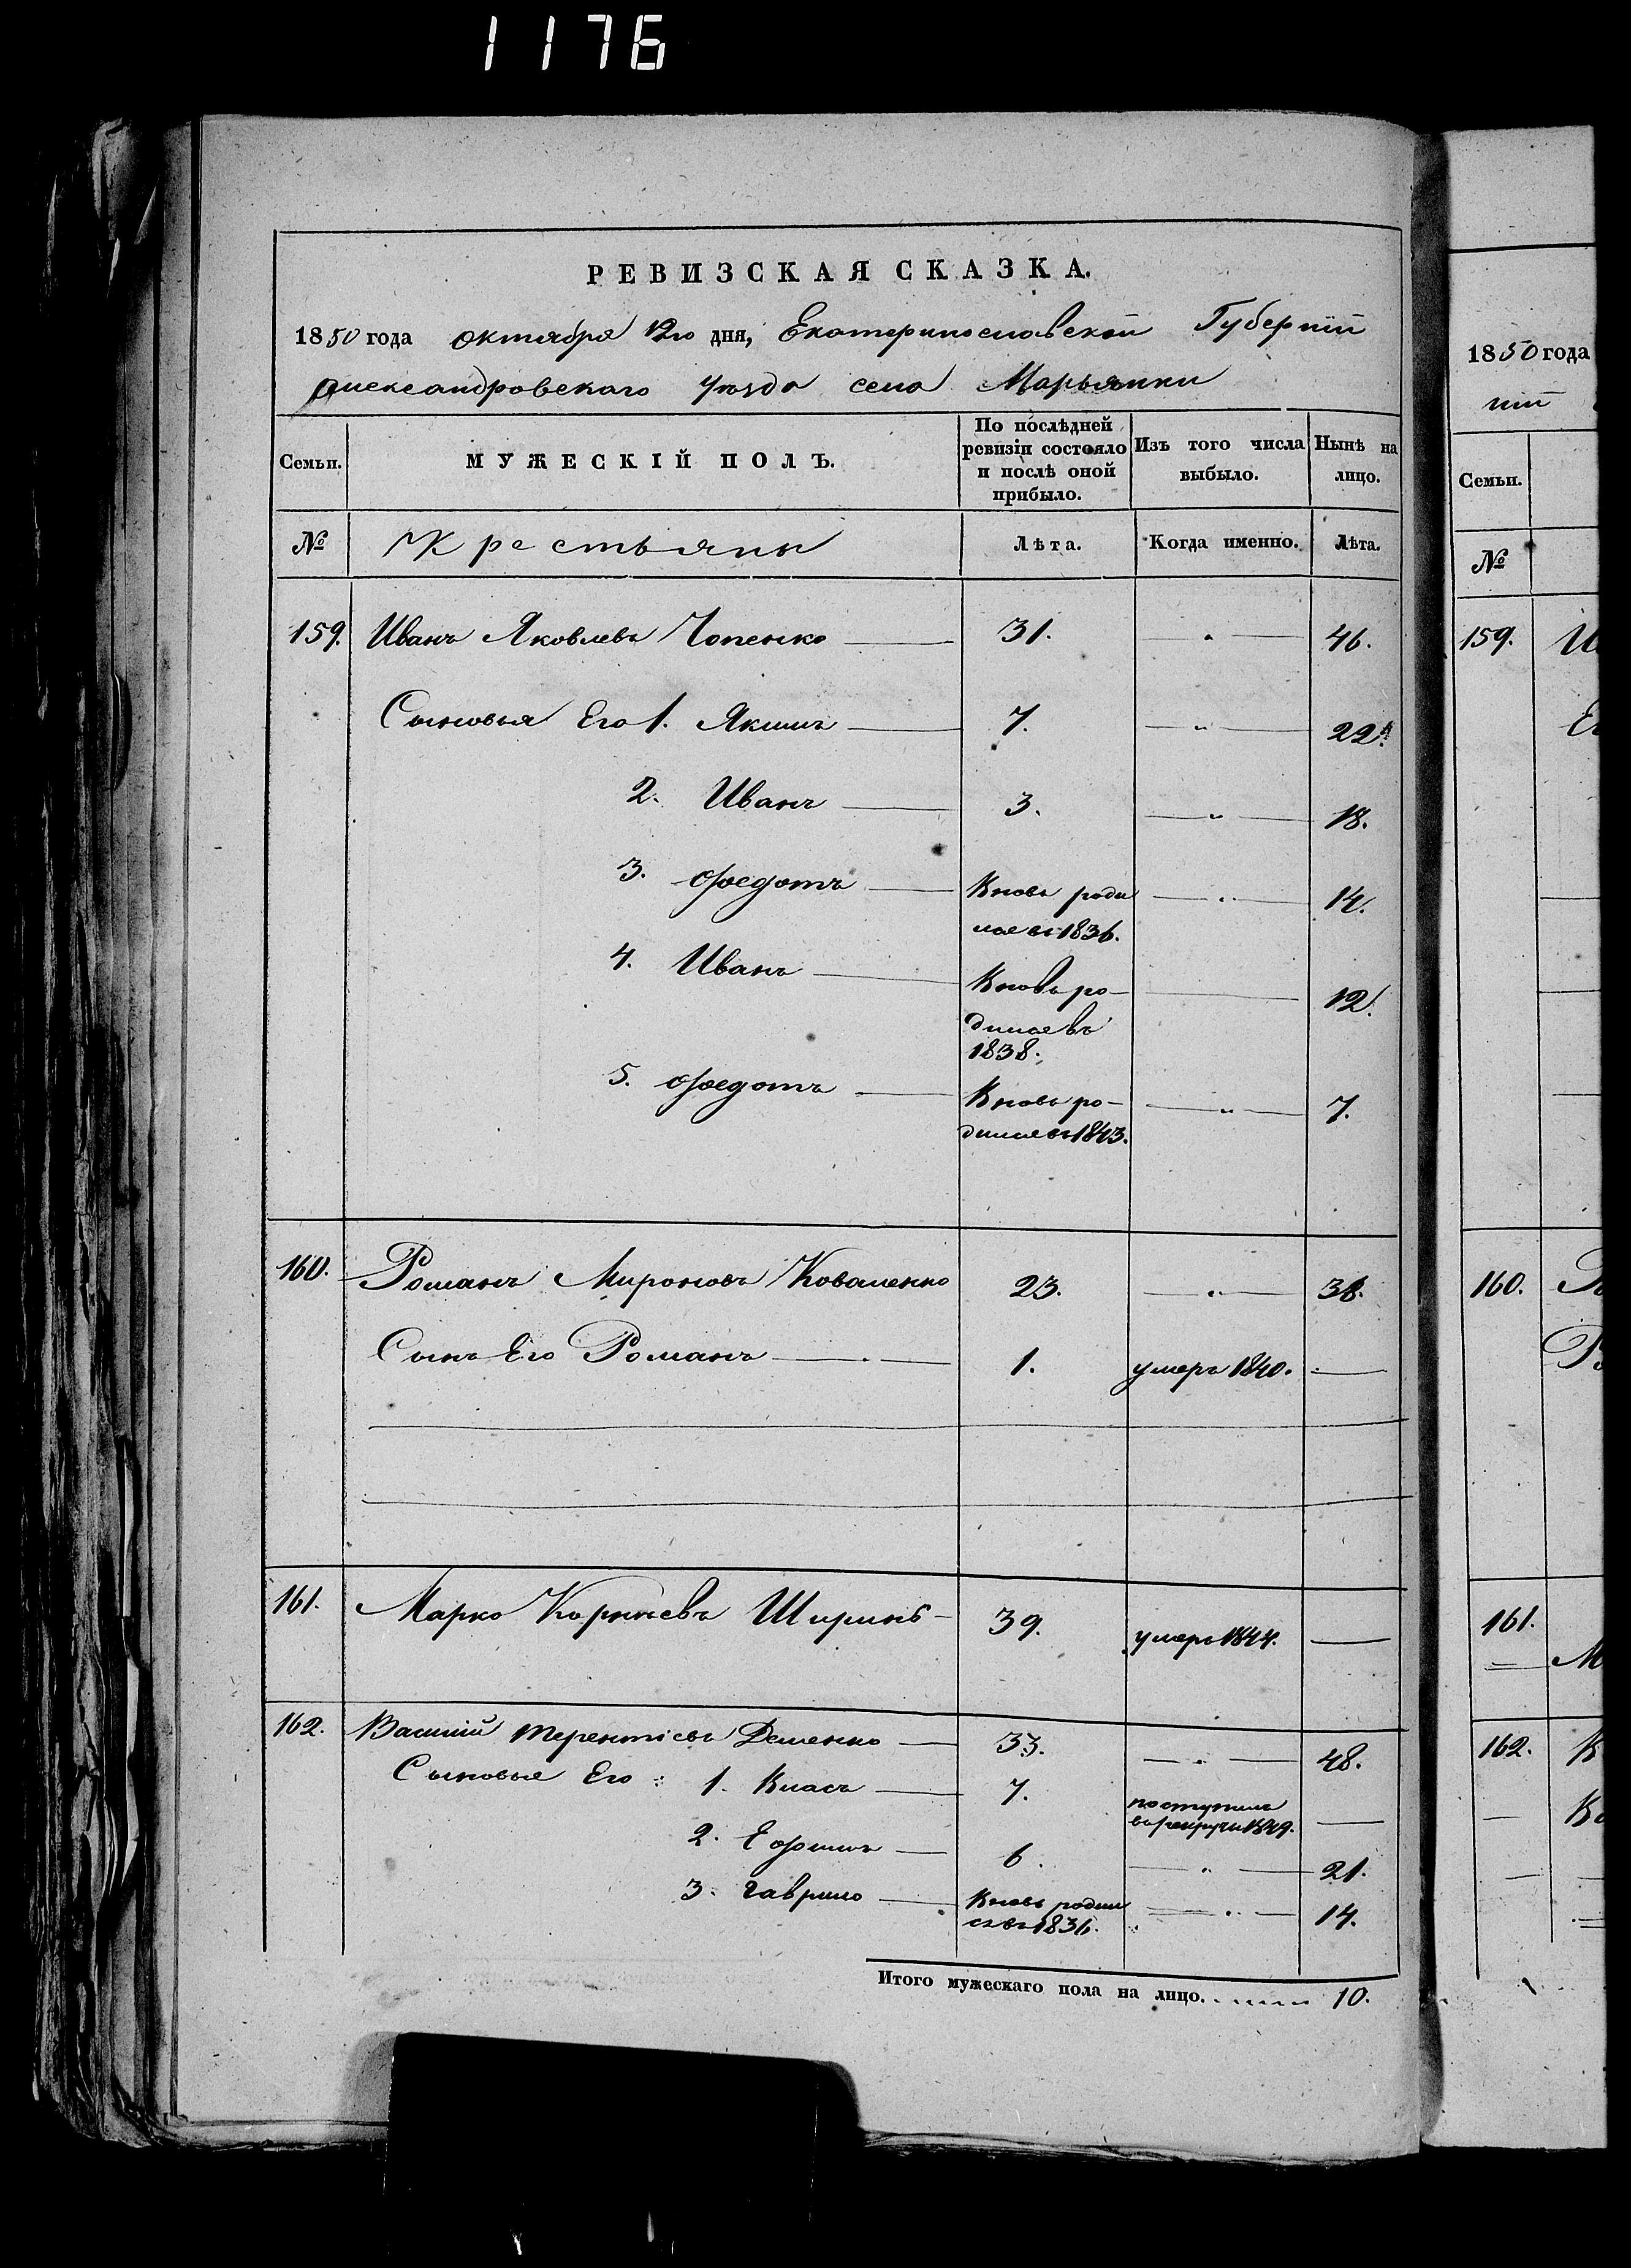 1176
РЕВИЗСКАЯ СКАЗКА.
1850 года октября 12го дня, Екатеринославской Губерніи
Александровскаго уѣзда села Марьянки
Семьи. МУЖЕСКІЙ ПОЛЪ. По послѣдней ревизіи состояло и послѣ оной прибыло. Изъ того числа выбыло. Нынѣ на лицо.
№ Крестьяне Лѣта. Когда именно. Лѣта.
159. Иванъ Яковлевъ Чопенко 31. " 46.
Сыновья Его 1. Якимъ 7. " 22.
2. Иванъ 3. " 18.
3. Федотъ Вновь роди лся въ 1836. " 14.
4. Иванъ Вновь ро- дился въ 1838. 12.
5. Федотъ Вновь ро- дился въ 1843. " 7.
160. Романъ Мироновъ Коваленко 23. " 38.
Сынъ Его Романъ 1. умеръ 1840.
161. Марко Корнѣевъ Ширинъ 39. умеръ 1844.
162. Василій Терентіевъ Деменко 33. " 48.
Сыновья Его: 1. Власъ 7. поступилъ въ рекруты 1849.
2. Ефимъ 6. " 21.
3. Гаврило Вновь родил ся въ 1836. " 14.
Итого мужескаго пола на лицо. 10.
1850 года
ніи
Семьи.
№
159.
160.
161.
162.